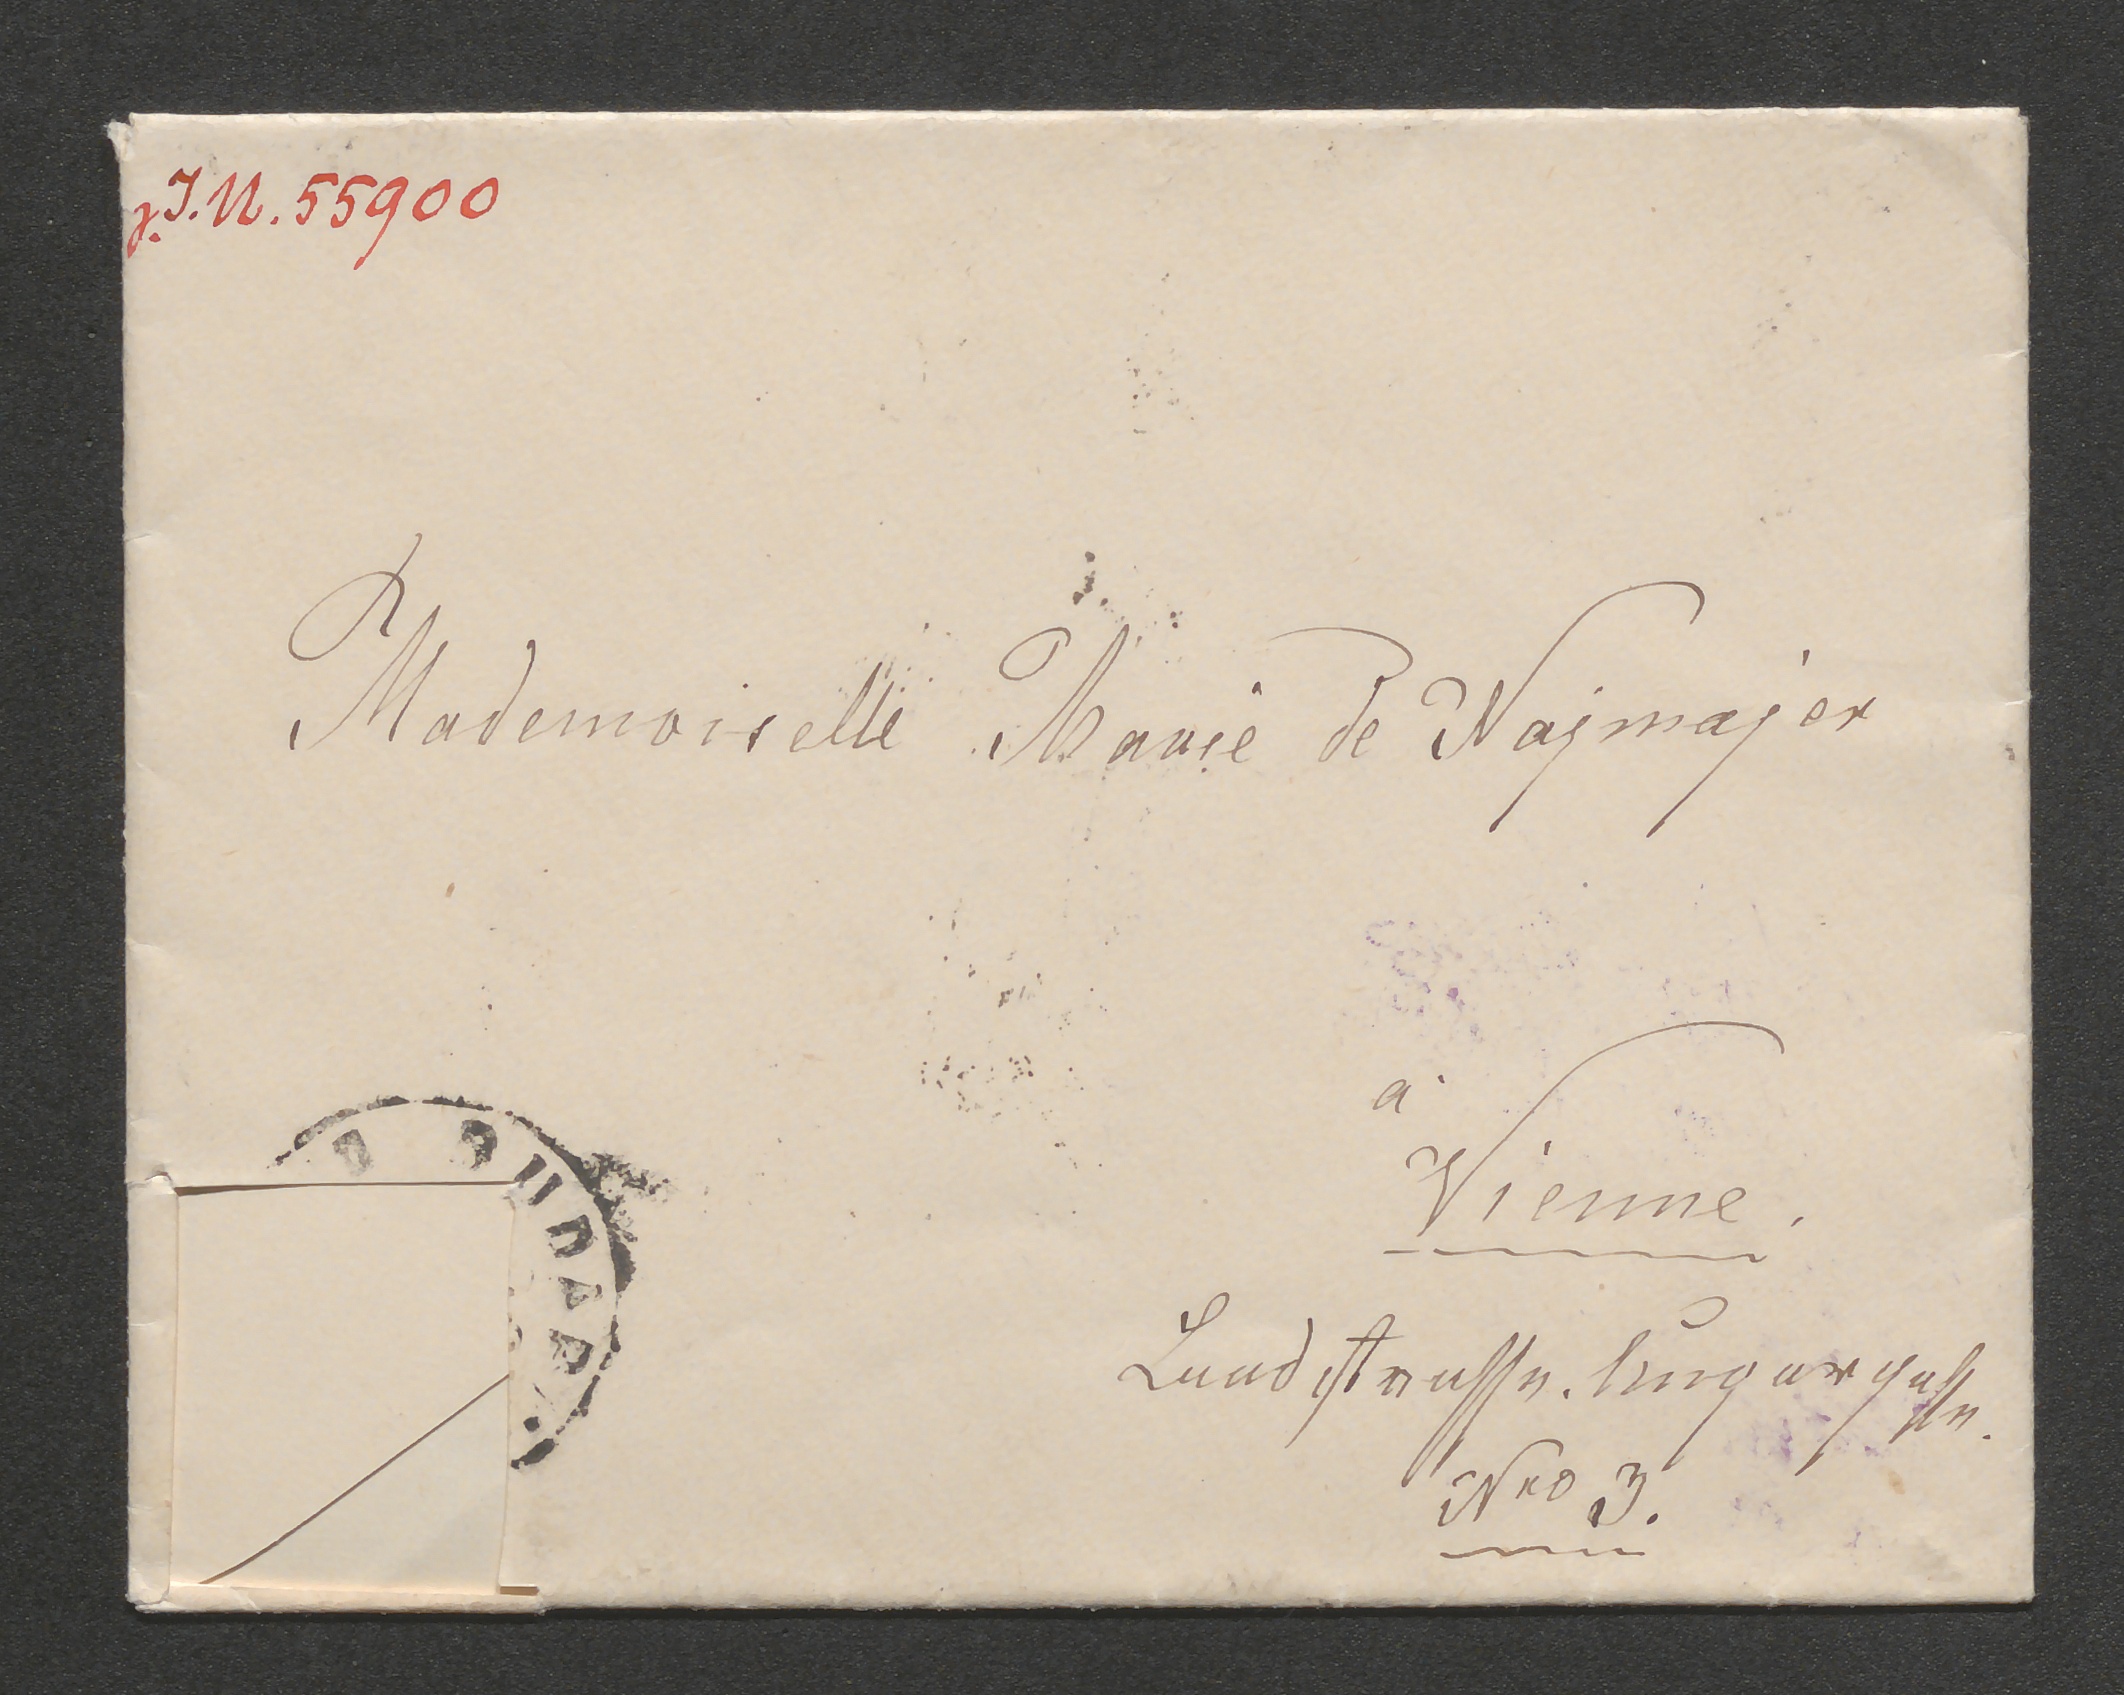 z. I.N. 55900
Mademoiselle Marie de Najmajer
à
Vienne.
BUDAP
Landstrasse. Ungargasse.
Nro 3.